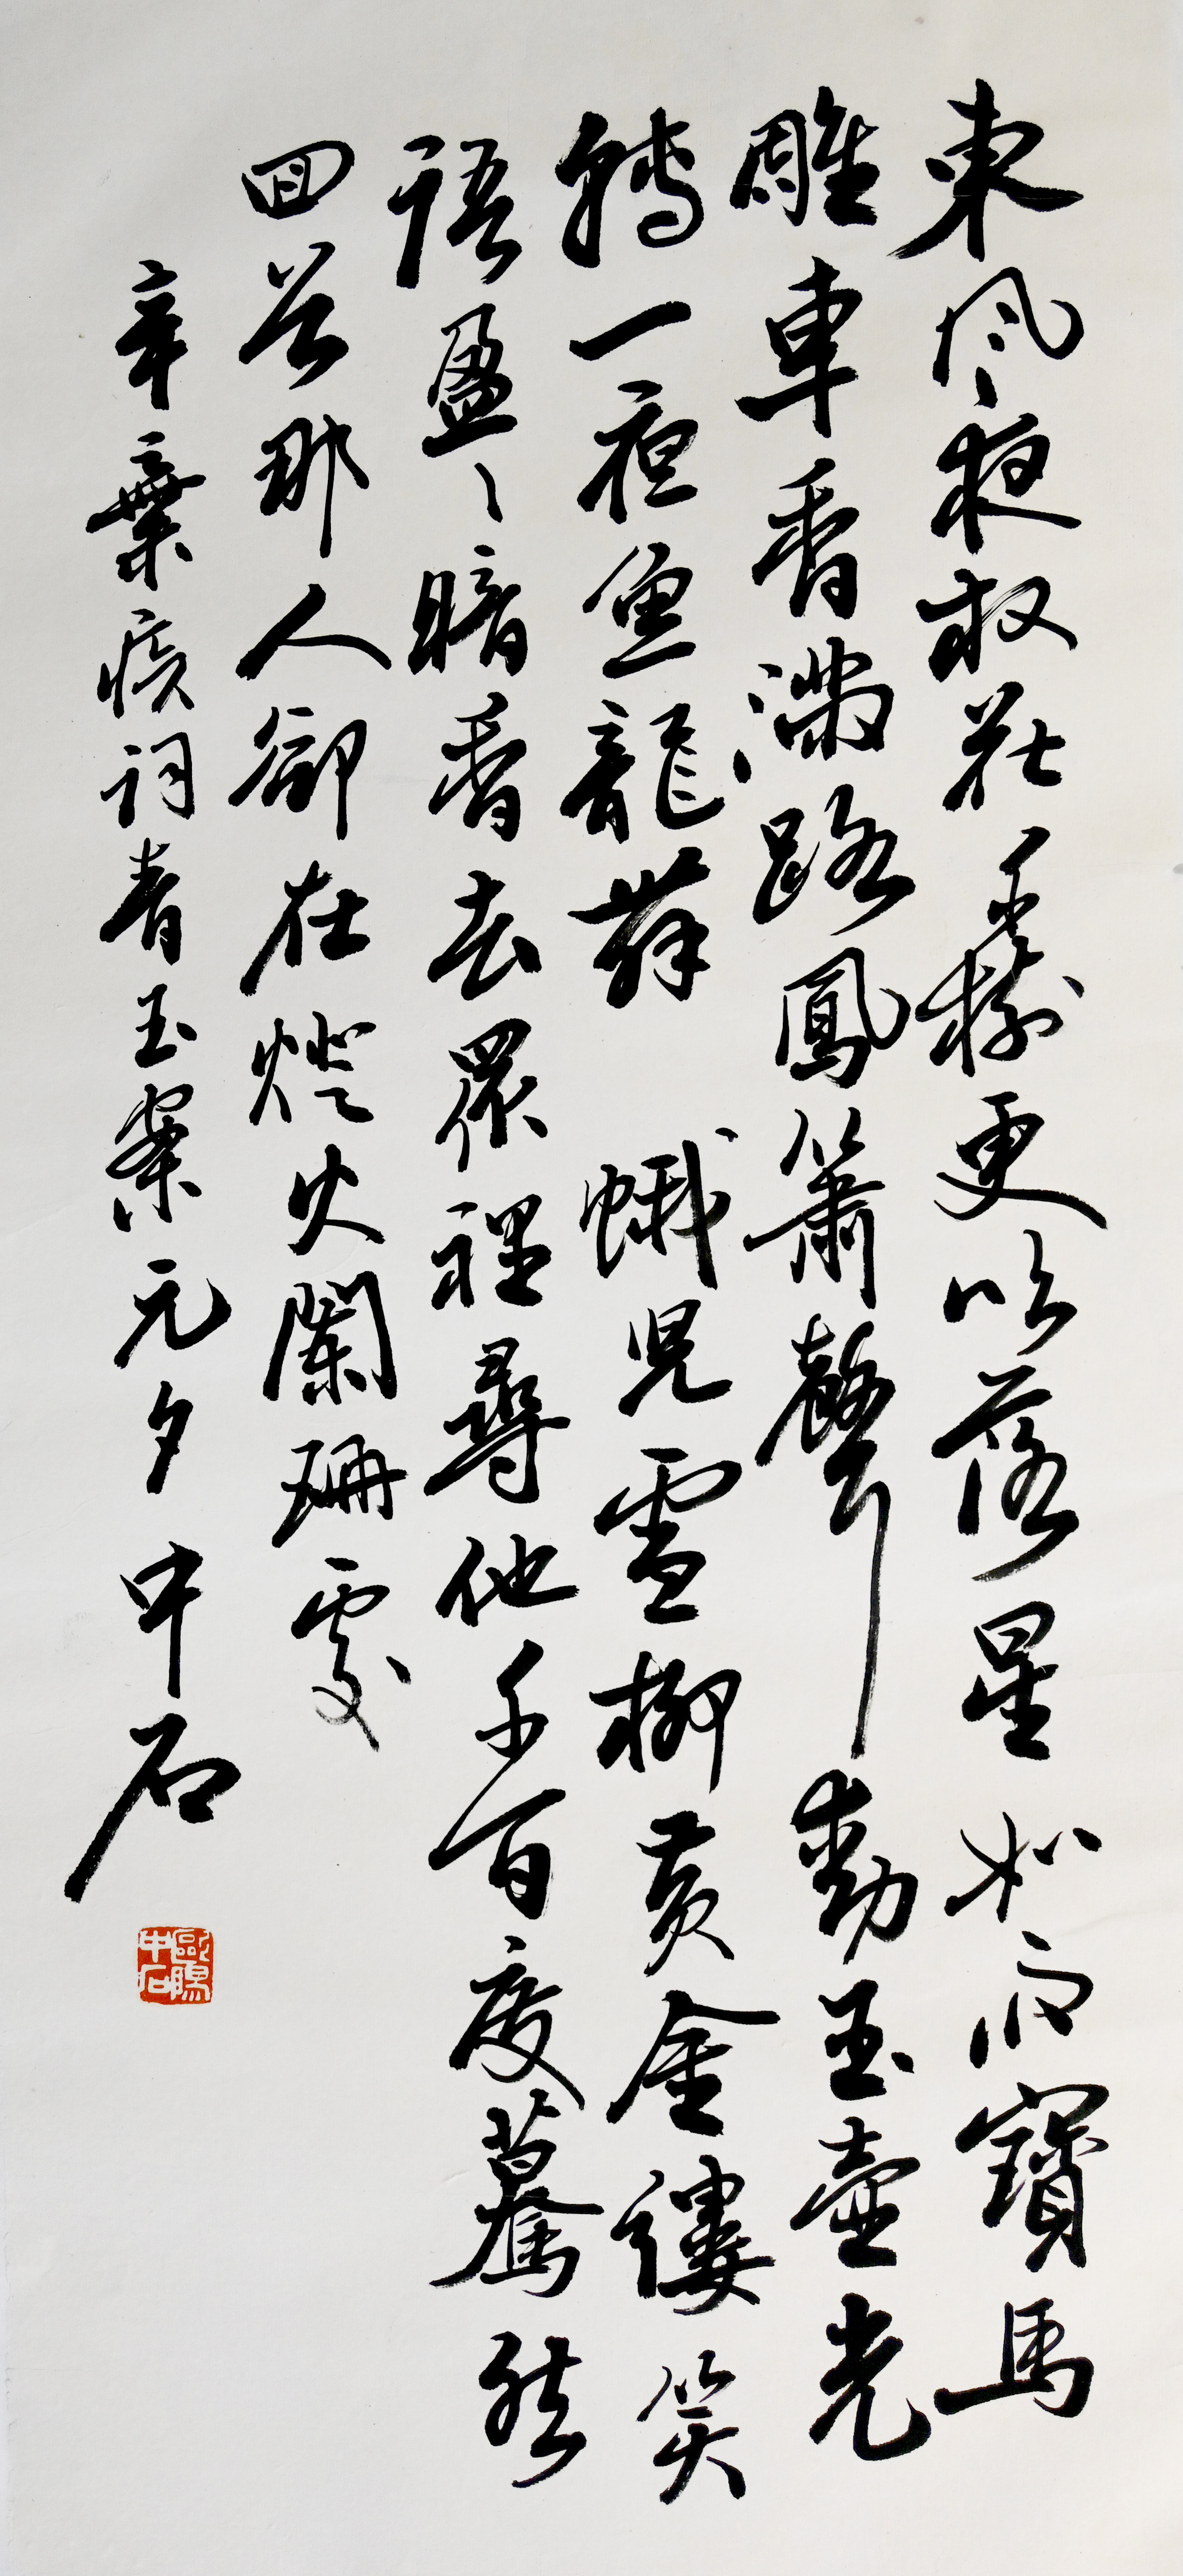 東風夜放花千樹更吹落星如雨寶馬
雕車香滿路鳳簫聲動玉壺光
轉一夜魚龍舞　蛾兒雪柳黃金縷笑
語盈〻暗香去眾裡尋他千百度驀然
回首那人卻在燈火闌珊處
辛棄疾詞青玉案元夕　中石
歐陽中石